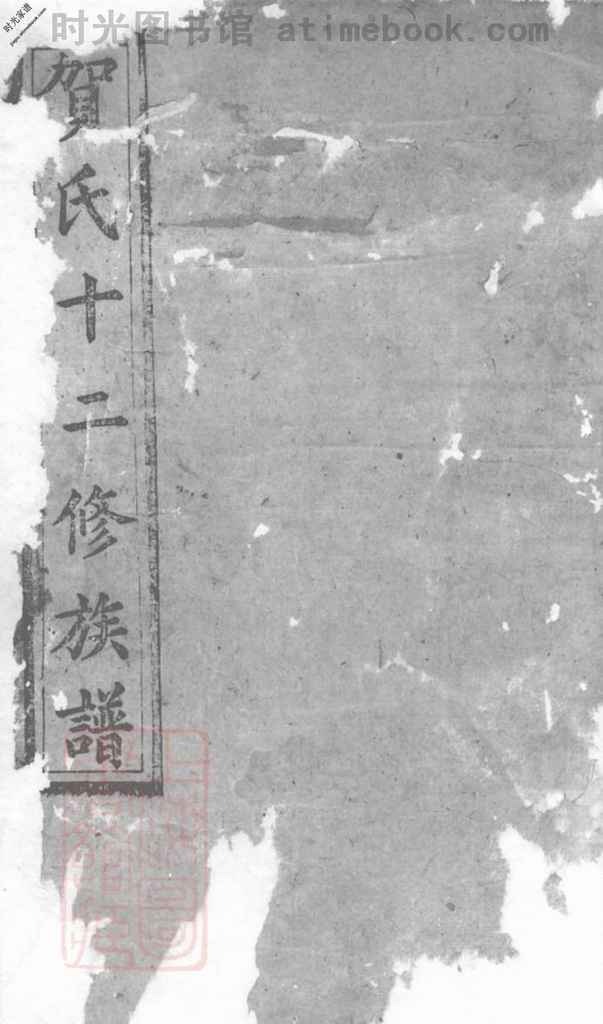 时光图书馆 atimebook.com
时光家谱
jiapu.atimebook.com
賀氏十二修族譜